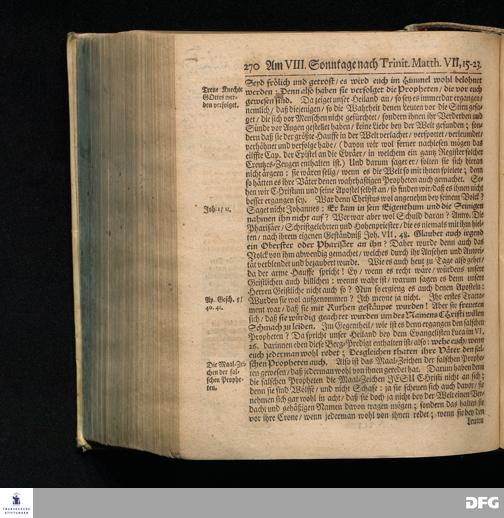 270 Am VIII. Sonntage nach Trinit. Matth. VII, 15-23.
Seyd frölich und getrost/ es wird euch im Himmel wohl belohnet
werden: Denn also haben sie verfolget die Propheten/ die vor euch
gewesen sind. Da zeiget unser Heiland an/ so sey es immerdar ergangen/
nemlich/ daß diejenigen/ so die Wahrheit denen Leuten vor die Stirn gesa-
get/ die sich vor Menschen nicht gefürchtet/ sondern ihnen ihr Verderben und
Sünde vor Augen gestellet haben/ keine Liebe bey der Welt gefunden; son-
dern daß sie der größte Hauffe in der Welt verlachet/ verspottet/ verleumdet/
verhöhnet und verfolget habe/ (davon wir wol ferner nachlesen mögen das
eilffte Cap. der Epistel an die Ebräer/ in welchem ein gantz Register solcher
Creutzes-Zeugen enthalten ist.) Und darum saget er/ sollen sie sich hieran
nicht ärgern: sie wären selig/ wenn es die Welt so mit ihnen spielete; denn
so hätten es ihre Väter denen wahrhafftigen Propheten auch gemachet. Se-
hen wir Christum und seine Apostel selbst an/ so finden wir/ daß es ihnen nicht
besser ergangen sey. War denn Christus wol angenehm bey seinem Volck?
Saget nicht Johannes: Er kam in sein Eigenthum und die Seinigen
nahmen ihn nicht auf? Wer war aber wol Schuld daran? Antw. Die
Pharisäer/ Schriftgelehrten und Hohenpriester/ die es niemals mit ihm hiel-
ten/ nach ihrem eigenen Geständniß Joh. VII, 48. Glaubet auch irgend
ein Oberster oder Pharisäer an ihn? Daher wurde denn auch das
Volck von ihm abwendig gemachet/ welches durch ihr Ansehen und Autori-
tät verblendet und bezaubert wurde. Wie es auch heut zu Tage also gehet/
da der arme Hauffe spricht: Ey/ wenn es recht wäre/ würdens unsere
Geistlichen auch billichen: wenns wahr ist/ warum sagen es denn unsere
Herren Geistliche nicht auch so? Nun so ergieng es auch denen Aposteln:
Wurden sie wol aufgenommen? Ich meyne ja nicht. Ihr erstes Tracta-
ment war/ daß sie mit Ruthen gestäupet wurden! Aber sie freueten
sich/ daß sie würdig geachtet wurden um des Namens Christi willen
Schmach zu leiden. Im Gegentheil/ wie ist es denn ergangen den falschen
Propheten? Da spricht unser Heiland bey dem Evangelisten Luca im VI,
26. darinnen eben diese Berg-Predigt enthalten ist/ also: wehe euch/ wenn
euch jederman wohl redet; Desgleichen thaten ihre Väter den fal-
schen Propheten auch. Also ist das Maal-Zeichen der falschen Prophe-
ten gewesen/ daß jederman wohl von ihnen geredet hat. Darum haben denn
die falschen Propheten die Maal-Zeichen JESU Christi nicht an sich;
denn sie sind Wölffe/ und nicht Schafe: ja sie scheuen sich auch davor/ sie
nehmen sich gar wohl in acht/ daß sie doch ja nicht bey der Welt einen Ver-
dacht und gehäßigen Namen davon tragen mögen; sondern das halten sie
vor ihre Crone/ wenn jederman wohl von ihnen redet; wenn sie bey den
Leuten
Treue Knechte
GOttes wer-
den verfolget.
Joh. 1/ 11.
Ap. Gesch. 5/
40. 41.
Die Maal-Zei-
chen der fal-
schen Prophe-
ten.
FRANCKESCHE
STIFTUNGEN
DFG